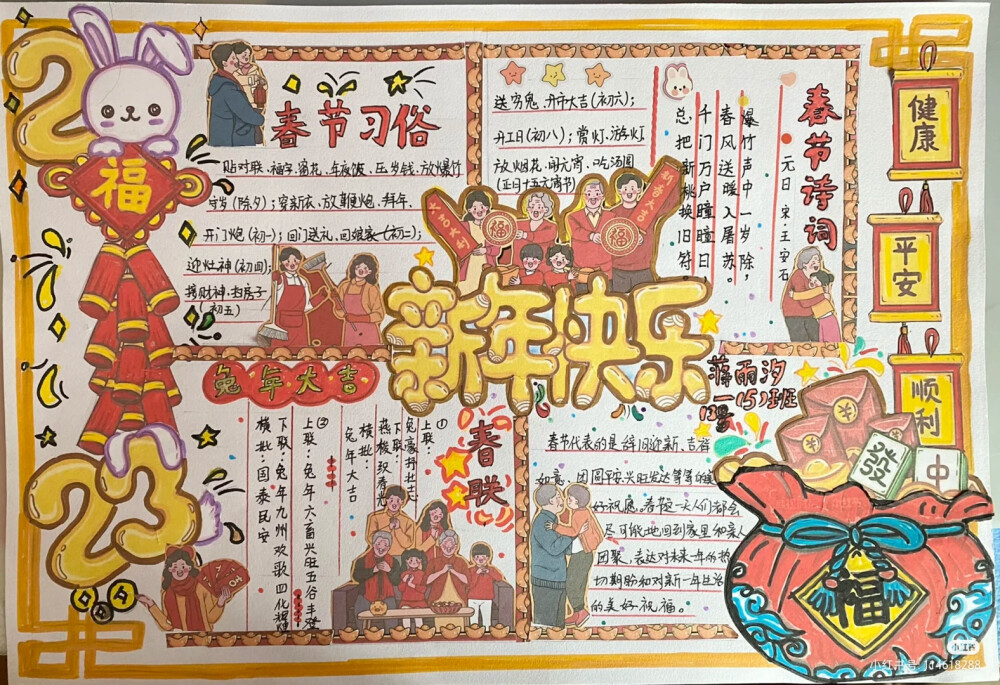 2023
福
春节习俗
贴对联、福字、窗花、年夜饭、压岁钱、放爆竹
守岁(除夕);穿新衣、放鞭炮、拜年、
开门炮(初一);回门送礼、回娘家(初二);
迎灶神(初四);
接财神、扫房子
(初五)
送穷鬼、开市大吉(初六);
开工日(初八);赏灯、游灯
放烟花、闹元宵、吃汤圆
(正月十五元宵节)
春节诗词
元日 宋·王安石
爆竹声中一岁除,
春风送暖入屠苏。
千门万户瞳瞳日
总把新桃换旧符
健康
平安
顺利
大吉大利
福
福
新春大吉
新年快乐
兔年大吉
②
上联:兔年六畜兴旺五谷丰登
下联:兔年九州欢歌四化
横批:国泰民安
春联
①
上联:
兔豪抒壮志
下联:
燕梭织春光
横批:
兔年大吉
蒋雨汐
一(5)班
春节代表的是辞旧迎新、吉祥
如意、团圆平安、兴旺发达等等的
好祝愿。春节这一天人们都会
尽可能地回到家里和亲人
团聚、表达对未来一年的热
切期盼和对新一年生活
的美好祝福。
發
中
福
小红书
小红书号